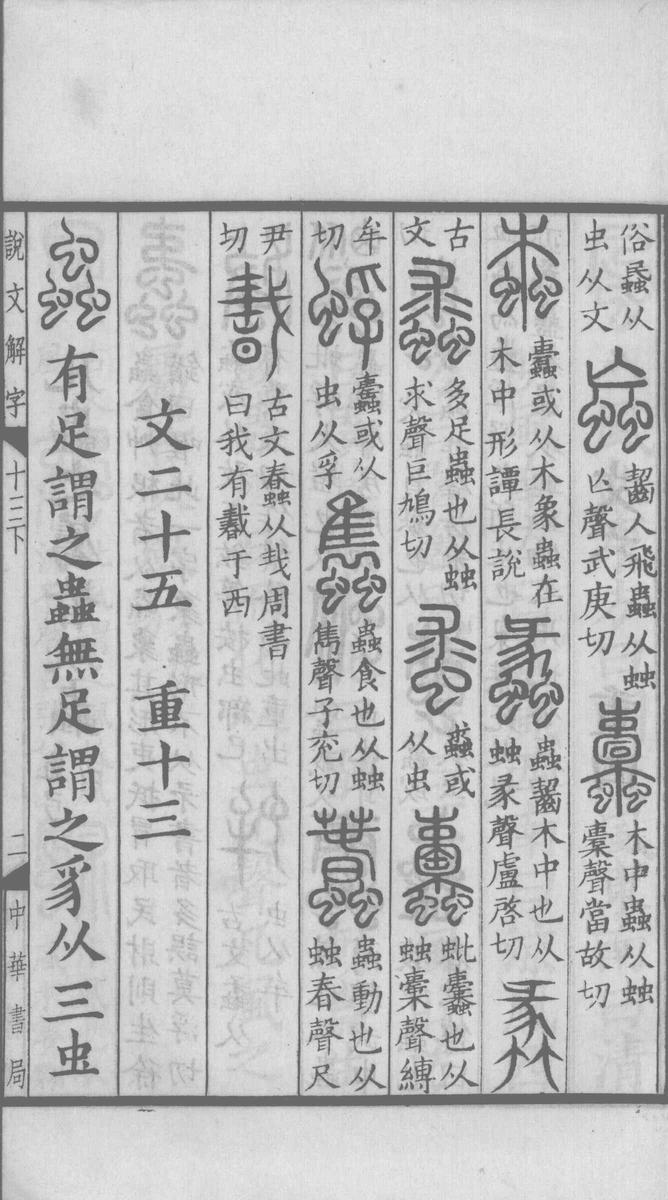 俗蟁从
虫从文
齧人飛蟲从䖵
亾聲武庚切
木中蟲从䖵
橐聲當故切
蠹或从木象蟲在
木中形譚長說
蟲齧木中也从
䖵彖聲盧啓切
古
文
多足蟲也从䖵
求聲巨鳩切
蟲或
从虫
蚍蠹也从
䖵橐聲縛
牟
切
蠹或从
虫从孚
蟲食也从䖵
雋聲子兖切
蟲動也从
䖵春聲尺
尹
切
古文蠢从𢦏周書
曰我有𢧢于西
文二十五 重十三
有足謂之蟲無足謂之豸从三虫
說文解字 十三下
二
中華書局